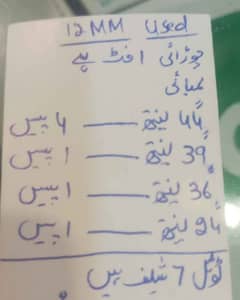 12MM used
چوڑائی 1 فٹ ہے
لمبائی
44 لینتھ — 4 پیس
39 لینتھ — 1 پیس
36 لینتھ — 1 پیس
24 لینتھ — 1 پیس
ٹوٹل 7 شیلف ہیں